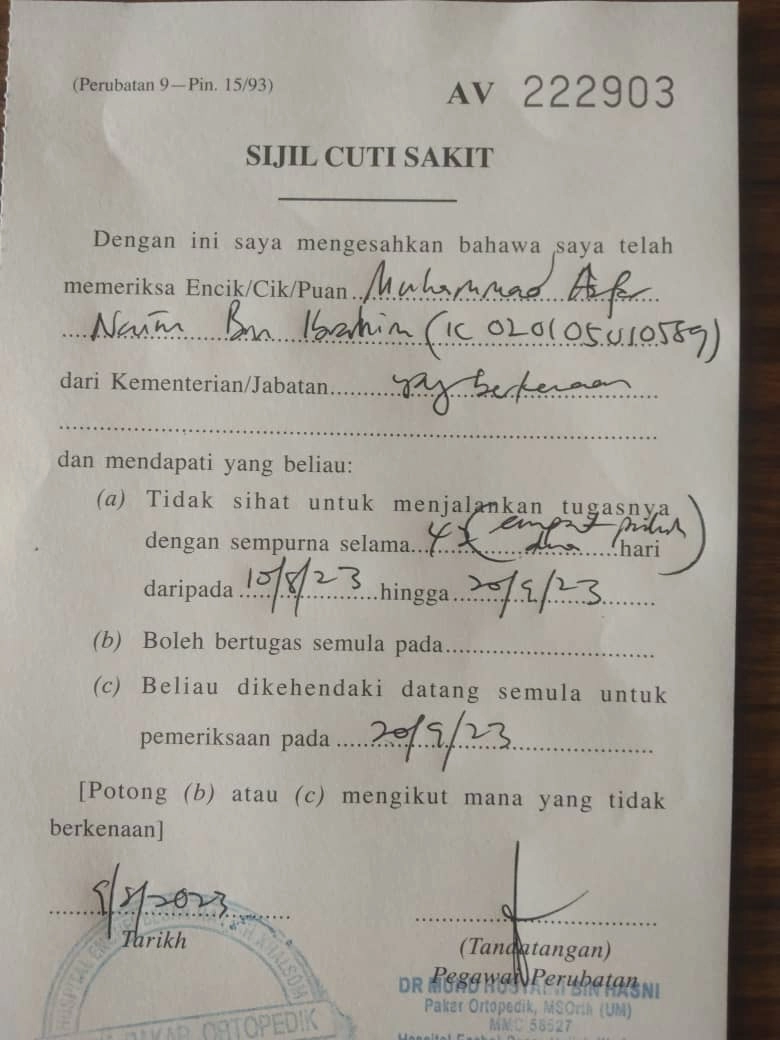 (Perubatan 9—Pin. 15/93)
AV 222903
SIJIL CUTI SAKIT
Dengan ini saya mengesahkan bahawa saya telah
memeriksa Encik/Cik/Puan Muhammad
Naim Bin Ibrahim (IC 020105010589)
dari Kementerian/Jabatan yg berkenaan
dan mendapati yang beliau:
(a) Tidak sihat untuk menjalankan tugasnya
dengan sempurna selama 42 (empat puluh dua) hari
daripada 10/8/23 hingga 20/9/23
(b) Boleh bertugas semula pada
(c) Beliau dikehendaki datang semula untuk
pemeriksaan pada 20/9/23
[Potong (b) atau (c) mengikut mana yang tidak
berkenaan]
9/8/2023
Tarikh
(Tandatangan)
Pegawai Perubatan
DR MOHD BIN HASNI
Pakar Ortopedik, MSOrth (UM)
MMC 58527
HOSPITAL
PAKAR ORTOPEDIK